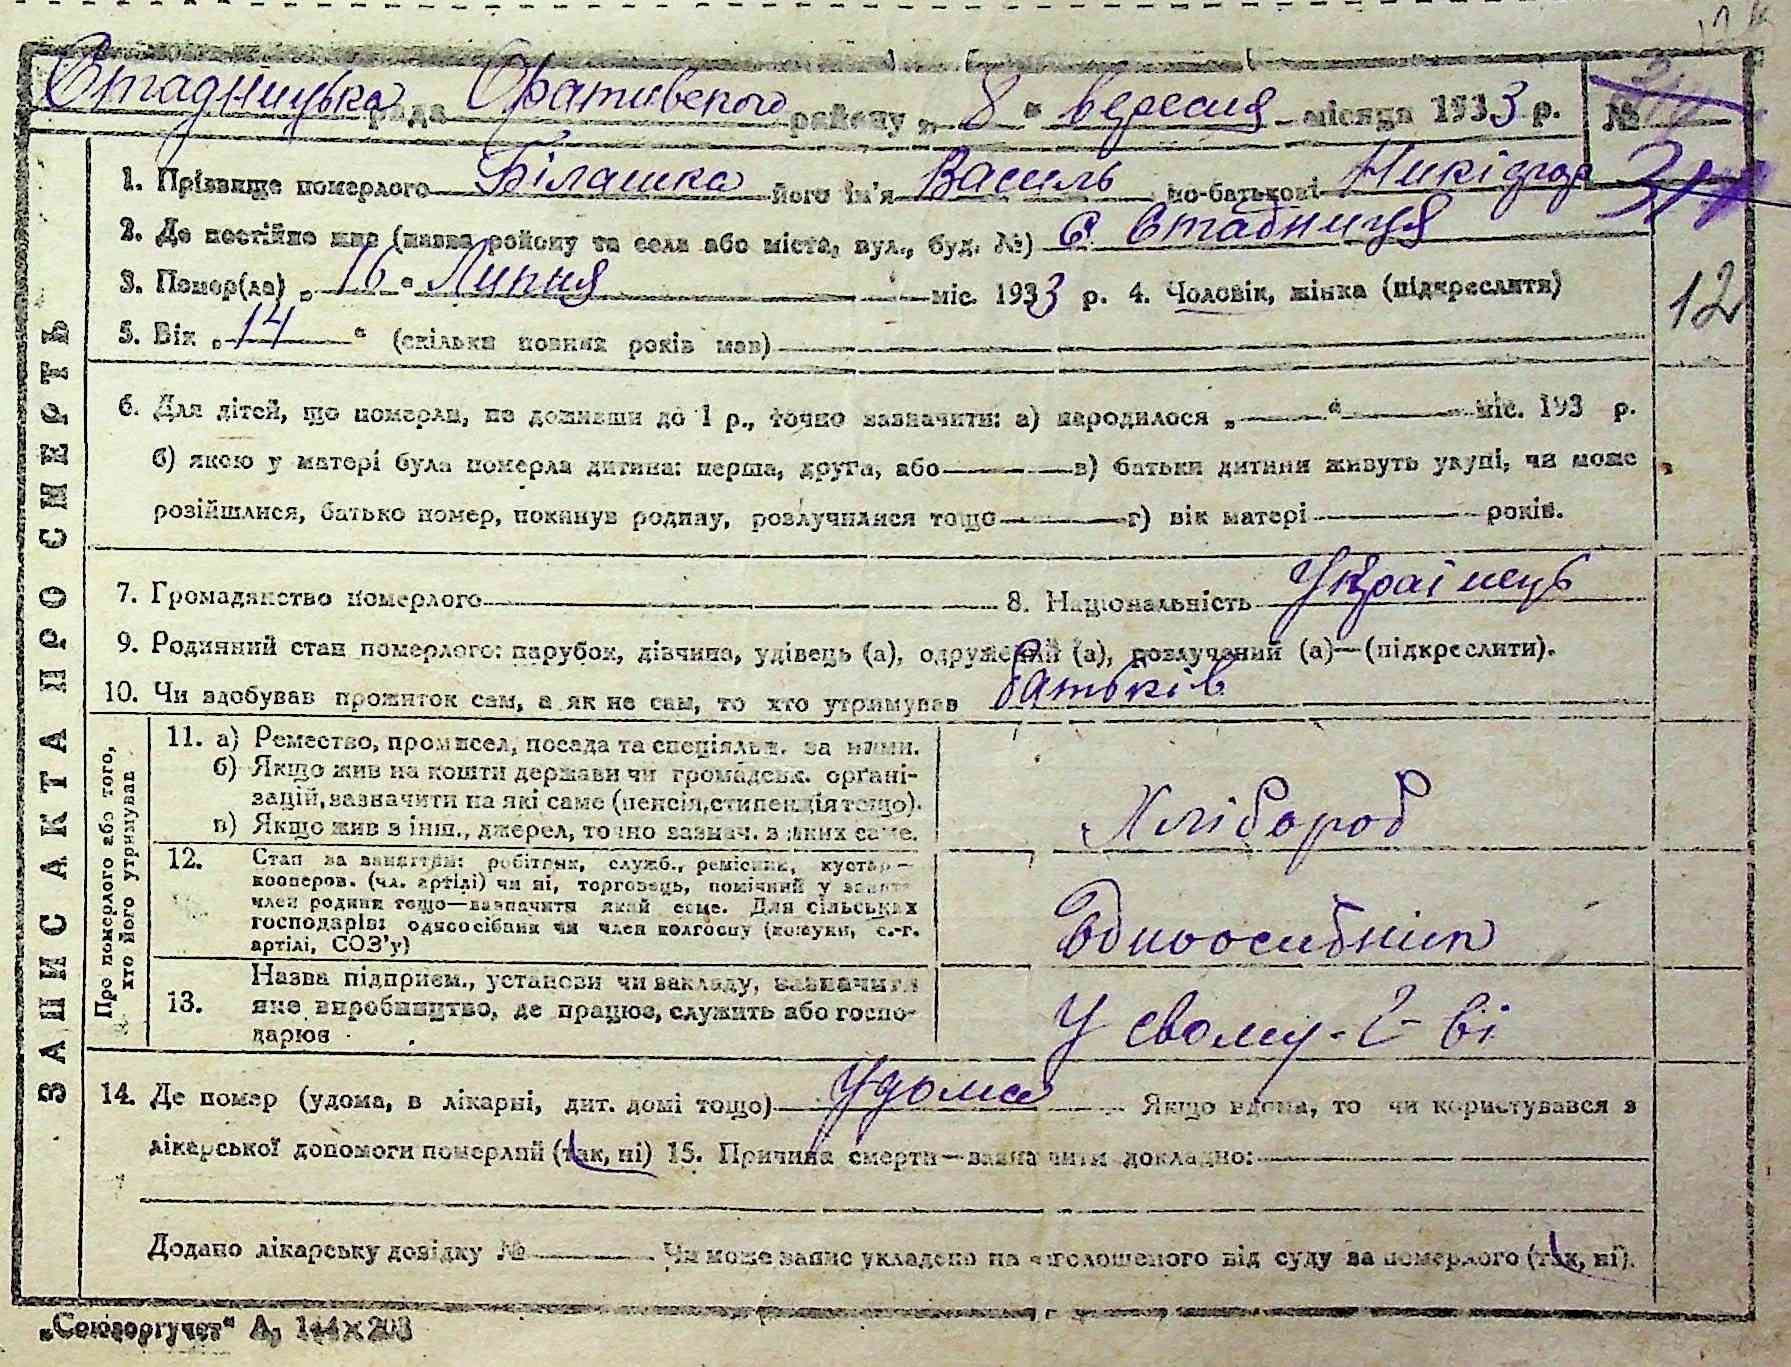 Стадницька рада Оративського району „ 8 " вересня місяця 1933 р. №
1. Прізвище померлого Білашка його ім'я Василь по-батькові Никіфор
2. Де постійно жив (назва району та села або міста, вул., буд. №) С. Стадниця
3. Помер(ла) „ 16 " Липня міс. 1933 р. 4. Чоловік, жінка (підкреслити)
12
5. Вік „ 14 " (скільки повних років мав)
6. Для дітей, що померли, не доживши до 1 р., точно зазначити: а) народилося „ " міс. 193 р.
б) якою у матері була померла дитина: перша, друга, або в) батьки дитини живуть укупі, чи може
розійшлися, батько помер, покинув родину, розлучилися тощо г) вік матері років.
7. Громадянство померлого 8. Національність Українець
9. Родинний стан померлого: парубок, дівчина, удівець (а), одружений (а), розлучений (а)—(підкреслити).
10. Чи здобував прожиток сам, а як не сам, то хто утримував батьків
11. а) Ремество, промисел, посада та спеціяльн. за ними.
б) Якщо жив на кошти держави чи громадськ. органі-
зацій, зазначити на які саме (пенсія, стипендія тощо).
в) Якщо жив з інш., джерел, точно зазнач. з яких саме.
Хлібороб
12. Стан за заняттям: робітник, служб., ремісник, кустар—
кооперов. (чл. артілі) чи ні, торговець, помічний у занятт.
член родини тощо—зазначити який саме. Для сільських
господарів: односібник чи член колгоспу (комуни, с.-г.
артілі, СОЗ'у)
Одноосибник
13. Назва підприєм., установи чи закладу, зазначити
яке виробництво, де працює, служить або госпо-
дарює
У свому-г-ві
14. Де помер (удома, в лікарні, дит. домі тощо) Удома Якщо вдома, то чи користувався з
лікарської допомоги померлий (так, ні) 15. Причина смерти—зазначити докладно:
Додано лікарську довідку № Чи може запис укладено на оголошеного від суду за померлого (так, ні).
ЗАПИС АКТА ПРО СМЕРТЬ
Про померлого або того,
хто його утримував
„Союзоргучет" А, 144×203